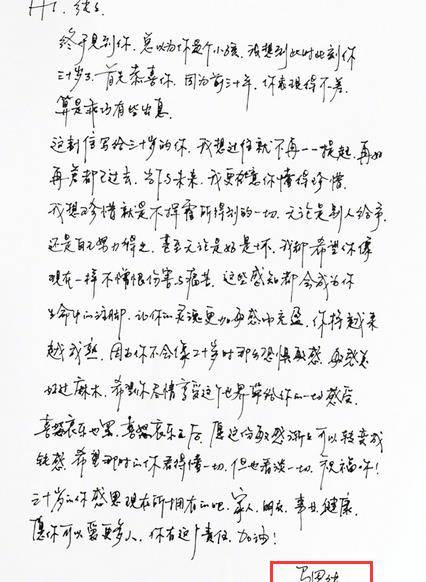 Hi, 纯纯
终于见到你，总以为你是个小孩，没想到此时此刻你
三十岁了，首先恭喜你，因为前三十年，你表现得不差
算是乖巧有些出息
这封信写给三十岁的你，我想过往就不再一一提起，再好
再差都已过去，当下与未来，我更愿意你懂得珍惜
我想珍惜就是不挥霍所得到的一切，无论是别人给予
还是自己努力得之，甚至无论是好是坏，我都希望你像
现在一样不憎恨伤害与痛苦，这些感知都会成为你
生命中的注脚，让你的灵魂更加敏感而充盈，你将越来
越成熟，因为你不会像二十岁时那么恐惧敏感，敏感
好过麻木，希望你尽情享受这个世界带给你的一切感受
喜怒哀乐也罢，喜怒哀乐之后，愿这份敏感渐渐可以转变成
钝感，希望那时的你看得懂一切，但也看淡一切，祝福你！
三十岁的你感恩现在所拥有的吧，家人，朋友，事业，健康
愿你可以影响更多人，你有这个责任，加油！
马思纯